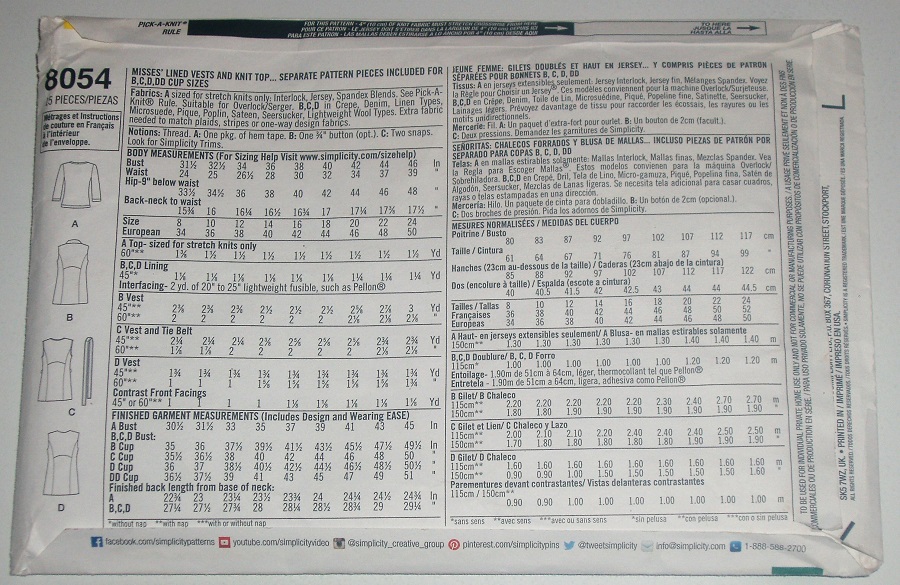 PICK-A-KNIT® RULE
FOR THIS PATTERN - 4" (10 cm) OF KNIT FABRIC MUST STRETCH CROSSWISE FROM HERE
POUR CE PATRON - LE JERSEY DOIT S'ETIRER DANS LA LARGEUR DE 4" (10 cm) D'ICI
PARA ESTE PATRON, LAS MALLAS DEBEN ESTIRARSE A LO ANCHO POR 4" (10 cm) DESDE AQUÍ
TO HERE
JUSQU'À LA
HASTA ALLA
8054
15 PIECES/PIEZAS
Métrages et Instructions
de couture en Français
à l'intérieur
de l'enveloppe.
A
B
C
D
MISSES' LINED VESTS AND KNIT TOP... SEPARATE PATTERN PIECES INCLUDED FOR
B,C,D,DD CUP SIZES
Fabrics: A sized for stretch knits only: Interlock, Jersey, Spandex Blends. See Pick-A-
Knit® Rule. Suitable for Overlock/Serger. B,C,D in Crepe, Denim, Linen Types,
Microsuede, Pique, Poplin, Sateen, Seersucker, Lightweight Wool Types. Extra fabric
needed to match plaids, stripes or one-way design fabrics.
Notions: Thread. A: One pkg. of hem tape. B: One ¾" button (opt.). C: Two snaps.
Look for Simplicity Trims.
BODY MEASUREMENTS (For Sizing Help Visit www.simplicity.com/sizehelp)
Bust 31½ 32½ 34 36 38 40 42 44 46 In
Waist 24 25 26½ 28 30 32 34 37 39 "
Hip-9" below waist
33½ 34½ 36 38 40 42 44 46 48 "
Back-neck to waist
15¾ 16 16¼ 16½ 16¾ 17 17¼ 17⅜ 17½ "
Size 8 10 12 14 16 18 20 22 24
European 34 36 38 40 42 44 46 48 50
A Top- sized for stretch knits only
60"** Yd
B,C,D Lining
45"* Yd
Interfacing- 2 yd. of 20" to 25" lightweight fusible, such as Pellon®
B Vest
45"** 3 Yd
60"*** 2 2 2 2 "
C Vest and Tie Belt
45"** 2¼ 2¼ 2¼ Yd
60"** "
D Vest
45"** 1¾ 1¾ 1¾ 1¾ 1¾ 1¾ 1¾ 1¾ 1¾ Yd
60"** 1 1 1 "
Contrast Front Facings
45" or 60"** 1 1 1 1 Yd
FINISHED GARMENT MEASUREMENTS (Includes Design and Wearing EASE)
A Bust 30½ 31½ 33 35 37 39 41 43 45 In
B,C,D Bust:
B Cup 35 36 37½ 39½ 41½ 43½ 45½ 47½ 49½ In
C Cup 35½ 36½ 38 40 42 44 46 48 50 "
D Cup 36 37 38½ 40½ 42½ 44½ 46½ 48½ 50½ "
DD Cup 36½ 37½ 39 41 43 45 47 49 51 "
Finished back length from base of neck:
A 22¾ 23 23¼ 23½ 23¾ 24 24¼ 24½ 24¾ In
B,C,D 27¼ 27½ 27¾ 28 28¼ 28½ 28¾ 29 29¼ "
*without nap **with nap ***with or without nap
JEUNE FEMME: GILETS DOUBLÉS ET HAUT EN JERSEY... Y COMPRIS PIÈCES DE PATRON
SÉPARÉES POUR BONNETS B, C, D, DD
Tissus: A en jerseys extensibles seulement: Jersey Interlock, Jersey fin, Mélanges Spandex. Voyez
la Règle pour Choisir un Jersey®. Ces modèles conviennent pour la machine Overlock/Surjeteuse.
B,C,D en Crêpe, Denim, Toile de Lin, Microsuédine, Piqué, Popeline fine, Satinette, Seersucker,
Lainages légers. Prévoyez davantage de tissu pour raccorder les écossais, les rayures ou les
motifs unidirectionnels.
Mercerie: Fil. A: Un paquet d'extra-fort pour ourlet. B: Un bouton de 2cm (facult.).
C: Deux pressions. Demandez les garnitures de Simplicity.
SEÑORITAS: CHALECOS FORRADOS Y BLUSA DE MALLAS... INCLUSO PIEZAS DE PATRÓN POR
SEPARADO PARA COPAS B, C, D, DD
Telas: A en mallas estirables solamente: Mallas Interlock, Mallas finas, Mezclas Spandex. Vea
la Regla para Escoger Mallas®. Estos modelos convienen para la máquina Overlock/de
Sobrehiladora. B,C,D en Crepé, Dril, Tela de Lino, Micro-gamuza, Piqué, Popelina fina, Satén de
Algodón, Seersucker, Mezclas de Lanas ligeras. Se necesita tela adicional para casar cuadros,
rayas o telas estampadas en una dirección.
Mercería: Hilo. A: Un paquete de cinta para dobladillo. B: Un botón de 2cm (opcional.).
C: Dos broches de presión. Pida los adornos de Simplicity.
MESURES NORMALISÉES / MEDIDAS DEL CUERPO
Poitrine / Busto
80 83 87 92 97 102 107 112 117 cm
Taille / Cintura
61 64 67 71 76 81 87 94 99 "
Hanches (23cm au-dessous de la taille) / Caderas (23cm abajo de la cintura)
85 88 92 97 102 107 112 117 122 cm
Dos (encolure à taille) / Espalda (escote a cintura)
40 40.5 41.5 42 42.5 43 44 44 44.5 cm
Tailles / Tallas 8 10 12 14 16 18 20 22 24
Françaises 36 38 40 42 44 46 48 50 52
Europeas 34 36 38 40 42 44 46 48 50
A Haut- en jerseys extensibles seulement/ A Blusa- en mallas estirables solamente
150cm** 1.30 1.30 1.30 1.30 1.30 1.30 1.40 1.40 1.40 m
B,C,D Doublure/ B, C, D Forro
115cm* 1.00 1.00 1.00 1.00 1.00 1.00 1.20 1.20 1.20 m
Entoilage- 1.90m de 51cm à 64cm, léger, thermocollant tel que Pellon®
Entretela - 1.90m de 51cm a 64cm, ligera, adhesiva como Pellon®
B Gilet/ B Chaleco
115cm** 2.20 2.20 2.20 2.20 2.20 2.30 2.40 2.70 2.70 m
150cm*** 1.80 1.80 1.80 1.90 1.90 1.90 1.90 1.90 1.90 "
C Gilet et Lien/ C Chaleco y Lazo
115cm** 2.00 2.10 2.10 2.20 2.40 2.40 2.40 2.50 2.50 m
150cm** 1.70 1.80 1.80 1.80 1.80 1.80 1.90 1.90 1.90 "
D Gilet/ D Chaleco
115cm** 1.60 1.60 1.60 1.60 1.60 1.60 1.60 1.60 1.60 m
150cm** 0.90 0.90 1.00 1.50 1.50 1.50 1.50 1.50 1.60 "
Parementures devant contrastantes/ Vistas delanteras contrastantes
115cm / 150cm**
0.90 0.90 1.00 1.00 1.00 1.00 1.00 1.00 1.00 m
*sans sens **avec sens ***avec ou sans sens *sin pelusa **con pelusa ***con o sin pelusa
TO BE USED FOR INDIVIDUAL PRIVATE HOME USE ONLY AND NOT FOR COMMERCIAL OR MANUFACTURING PURPOSES.
L
BOX 367, CORONATION STREET, STOCKPORT,
SK5 7WZ, UK. • PRINTED IN / IMPRIMÉ / IMPRESO EN USA.
facebook.com/simplicitypatterns youtube.com/simplicityvideo @simplicity_creative_group pinterest.com/simplicitypins @tweetsimplicity info@simplicity.com 1-888-588-2700